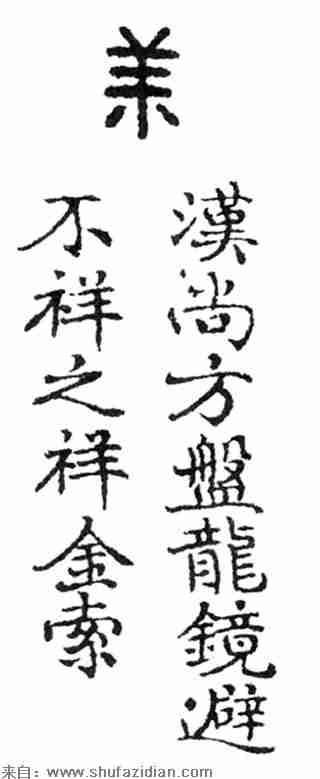 漢尚方盤龍鏡避
不祥之祥金索
来自：www.shufazidian.com